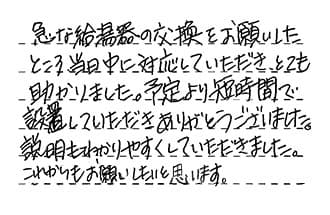 急な給湯器の交換をお願いした
ところ当日中に対応していただき、とても
助かりました。予定より短時間で
設置していただきありがとうございました。
説明もわかりやすくしていただきました。
これからもお願いしたいと思います。